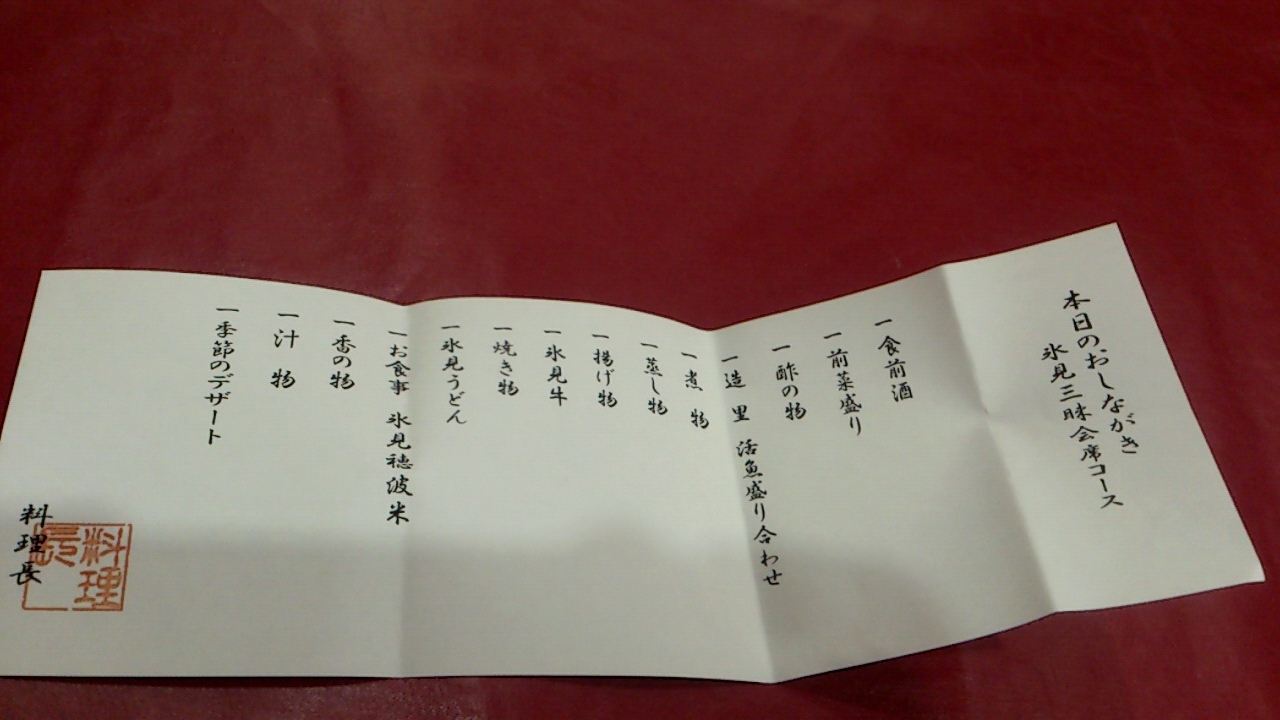 本日のおしながき
氷見三昧会席コース
一 食前酒
一 前菜盛り
一 酢の物
一 造 里 活魚盛り合わせ
一 煮 物
一 蒸し物
一 揚げ物
一 氷見牛
一 焼き物
一 氷見うどん
一 お食事 氷見穂波米
一 香の物
一 汁 物
一 季節のデザート
料理長
料理長